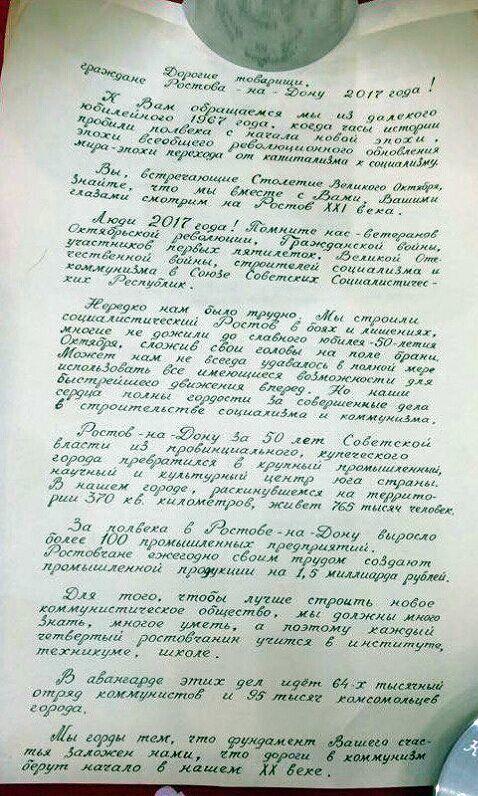 Дорогие товарищи,
граждане Ростова-на-Дону 2017 года!
К Вам обращаемся мы из далекого
юбилейного 1967 года, когда часы истории
пробили полвека с начала новой эпохи,
эпохи всеобщего революционного обновления
мира-эпохи перехода от капитализма к социализму.
Вы, встречающие Столетие Великого Октября,
Знайте, что мы вместе с Вами, Вашими
глазами смотрим на Ростов XXI века.
Люди 2017 года! Помните нас-ветеранов
Октябрьской революции, Гражданской войны,
участников первых пятилеток, Великой Оте-
чественной войны, строителей социализма и
коммунизма в Союзе Советских Социалистичес-
ких Республик.
Нередко нам было трудно. Мы строили
социалистический Ростов в боях и лишениях,
многие не дожили до славного юбилея-50-летия
Октября, сложив свои головы на поле брани.
Может нам не всегда удавалось в полной мере
использовать все имеющиеся возможности для
быстрейшего движения вперед. Но наши
сердца полны гордости за совершенные дела
в строительстве социализма и коммунизма.
Ростов-на-Дону за 50 лет Советской
власти из провинциального, купеческого
города превратился в крупный промышленный,
научный и культурный центр юга страны.
В нашем городе, раскинувшемся на террито-
рии 370 кв. километров, живет 765 тысяч человек.
За полвека в Ростове-на-Дону выросло
более 100 промышленных предприятий.
Ростовчане ежегодно своим трудом создают
промышленной продукции на 1,5 миллиарда рублей.
Для того, чтобы лучше строить новое
коммунистическое общество, мы должны много
знать, многое уметь, а поэтому каждый
четвертый ростовчанин учится в институте,
техникуме, школе.
В авангарде этих дел идёт 64-х тысячный
отряд коммунистов и 95 тысяч комсомольцев
города.
Мы горды тем, что фундамент Вашего счас-
тья заложен нами, что дороги в коммунизм
берут начало в нашем XX веке.